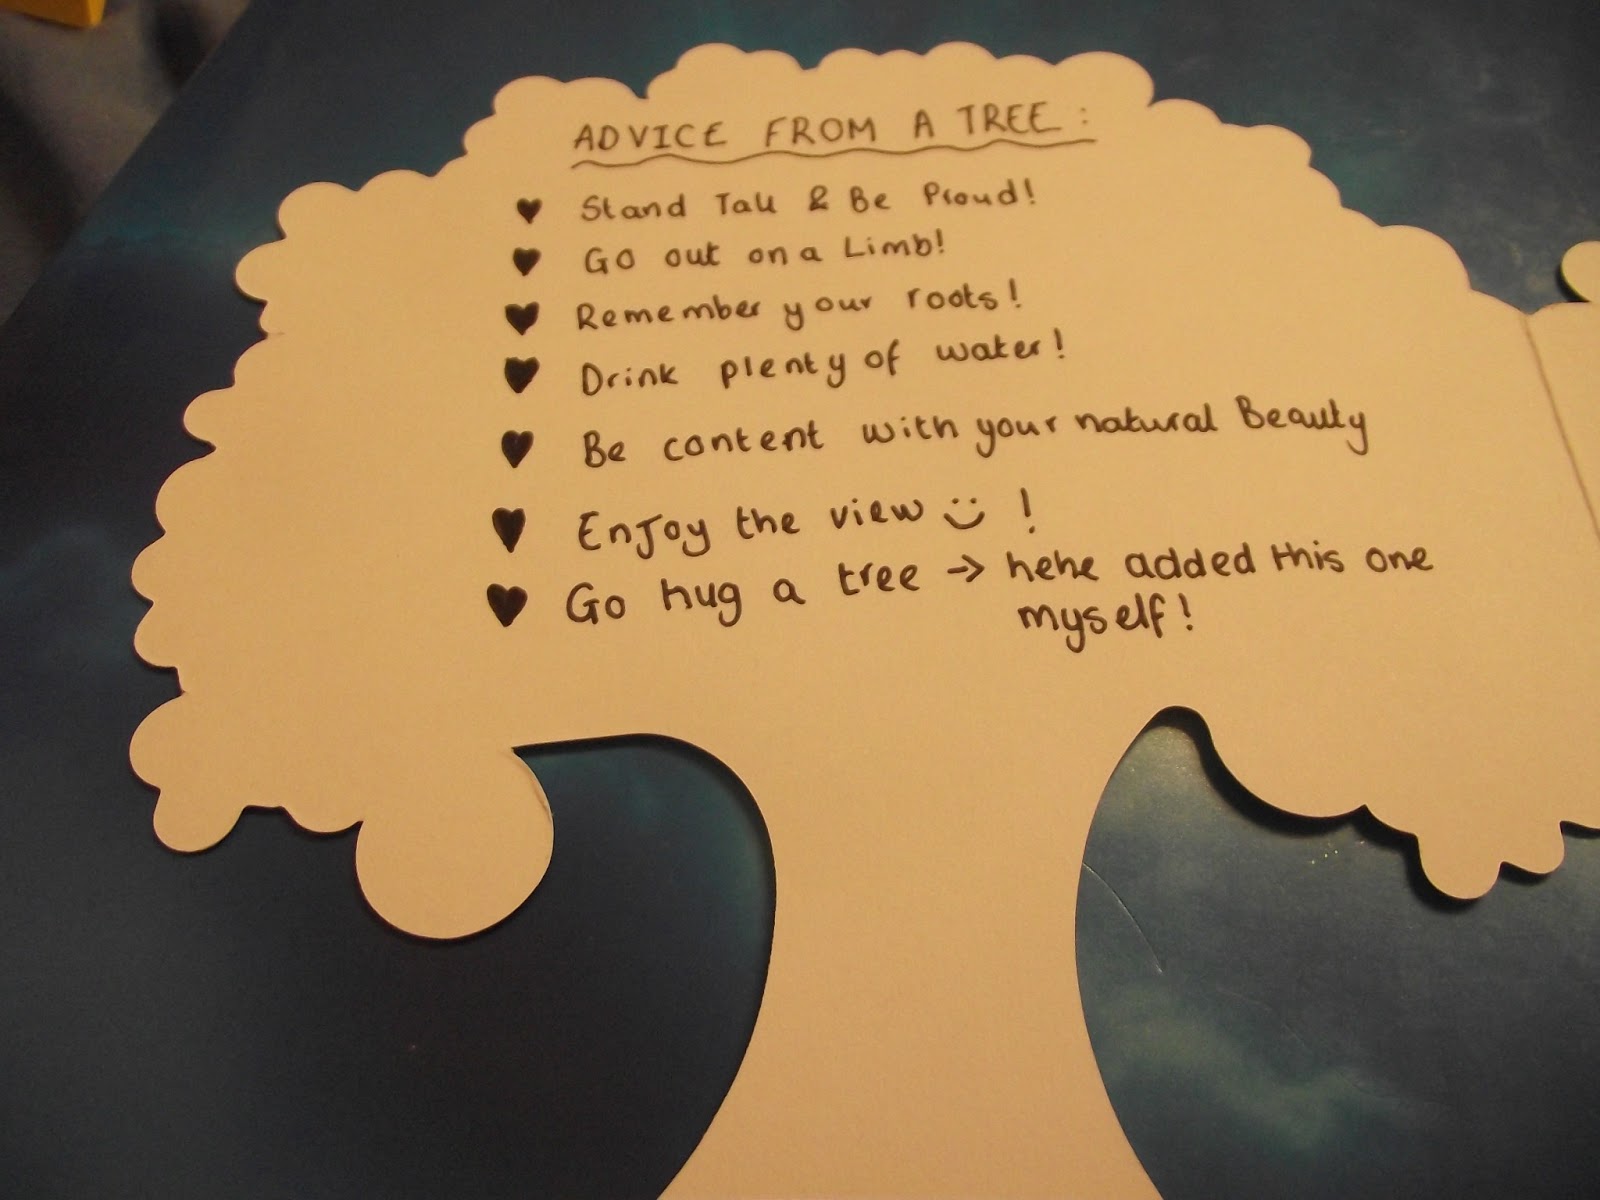 ADVICE FROM A TREE:
♥ Stand Tall & Be Proud!
♥ Go out on a Limb!
♥ Remember your roots!
♥ Drink plenty of water!
♥ Be content with your natural Beauty
♥ Enjoy the view ☺ !
♥ Go hug a tree → hehe added this one
myself!